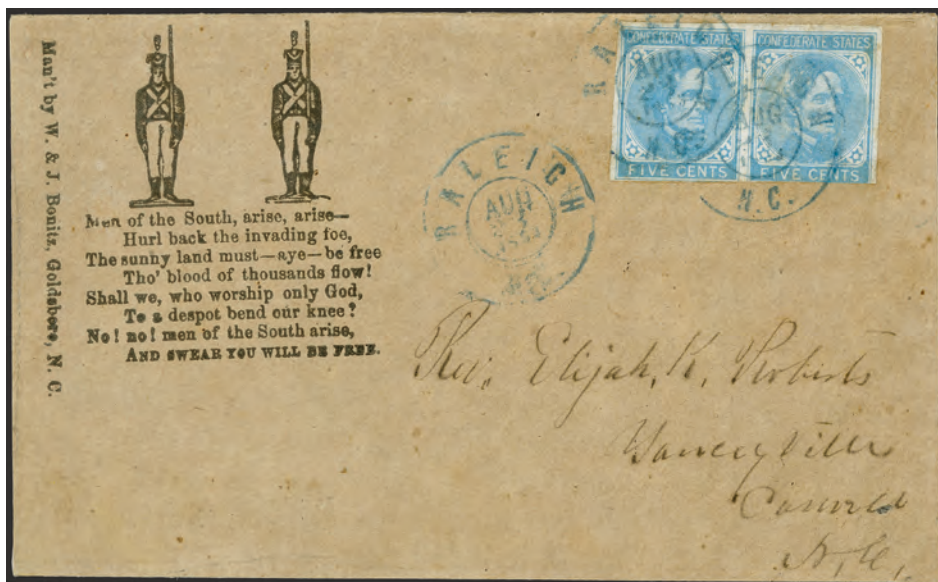 Man't by W. & J. Bonitz, Goldsboro, N. C.
Men of the South, arise, arise—
Hurl back the invading foe,
The sunny land must—aye—be free
Tho' blood of thousands flow!
Shall we, who worship only God,
To a despot bend our knee?
No! no! men of the South arise,
AND SWEAR YOU WILL BE FREE.
RALEIGH
AUG
N.C.
CONFEDERATE STATES
FIVE CENTS
CONFEDERATE STATES
FIVE CENTS
RALEIGH
AUG
N.C.
AUG
N.C.
Rev. Elijah. K. Roberts
Yanceyville
Caswell
N. C.